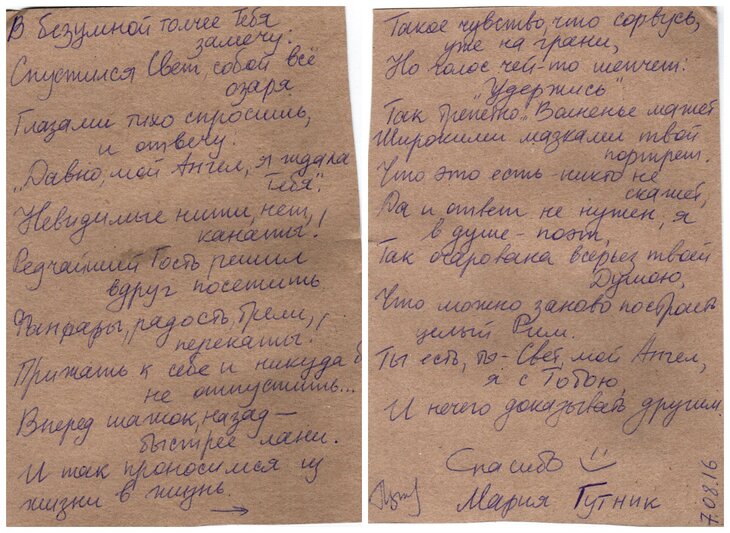 В безумной толчее Тебя
замечу:
Спустился Свет, собой всё
озаря
Глазами тихо спросишь,
и отвечу:
"Давно, мой Ангел, я ждала
Тебя".
Невидимые нити, нет,
канаты!
Редчайший Гость решил
вдруг посетить.
Фанфары, радость, трели,
перекаты!
Прижать к себе и никуда б
не отпустить...
Вперед шажок, назад –
быстрее лани.
И так проносимся из
жизни в жизнь.
→
Такое чувство, что сорвусь,
уже на грани,
Но голос чей-то шепчет:
"Удержись"
Так трепетно. Волненье мажет
Широкими мазками твой
портрет.
Что это есть - никто не
скажет,
Да и ответ не нужен, я
в душе - поэт,
Так очарована всерьез твоей
Душою,
Что можно заново построить
целый Рим.
Ты есть, ты - Свет, мой Ангел,
я с Тобою,
И нечего доказывать другим.
Спасибо
Мария Гутник
7.08.16